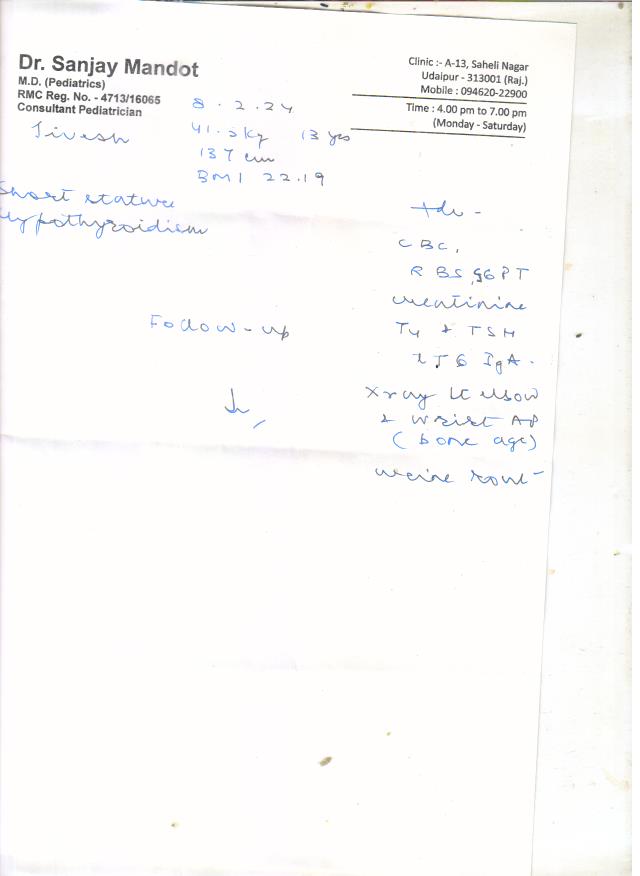 Dr. Sanjay Mandot
M.D. (Pediatrics)
RMC Reg. No. - 4713/16065
Consultant Pediatrician
Clinic :- A-13, Saheli Nagar
Udaipur - 313001 (Raj.)
Mobile : 094620-22900
Time : 4.00 pm to 7.00 pm
(Monday - Saturday)
8.2.24
Jivesh
41.2kg 13 yrs
137 cm
BMI 22.19
Short stature
Hypothyroidism
Adv -
CBC,
RBS, SGPT
creatinine
T4 & TSH
tTG IgA.
Follow-up
Xray Lt elbow
& Wrist AP
(bone age)
urine rout-